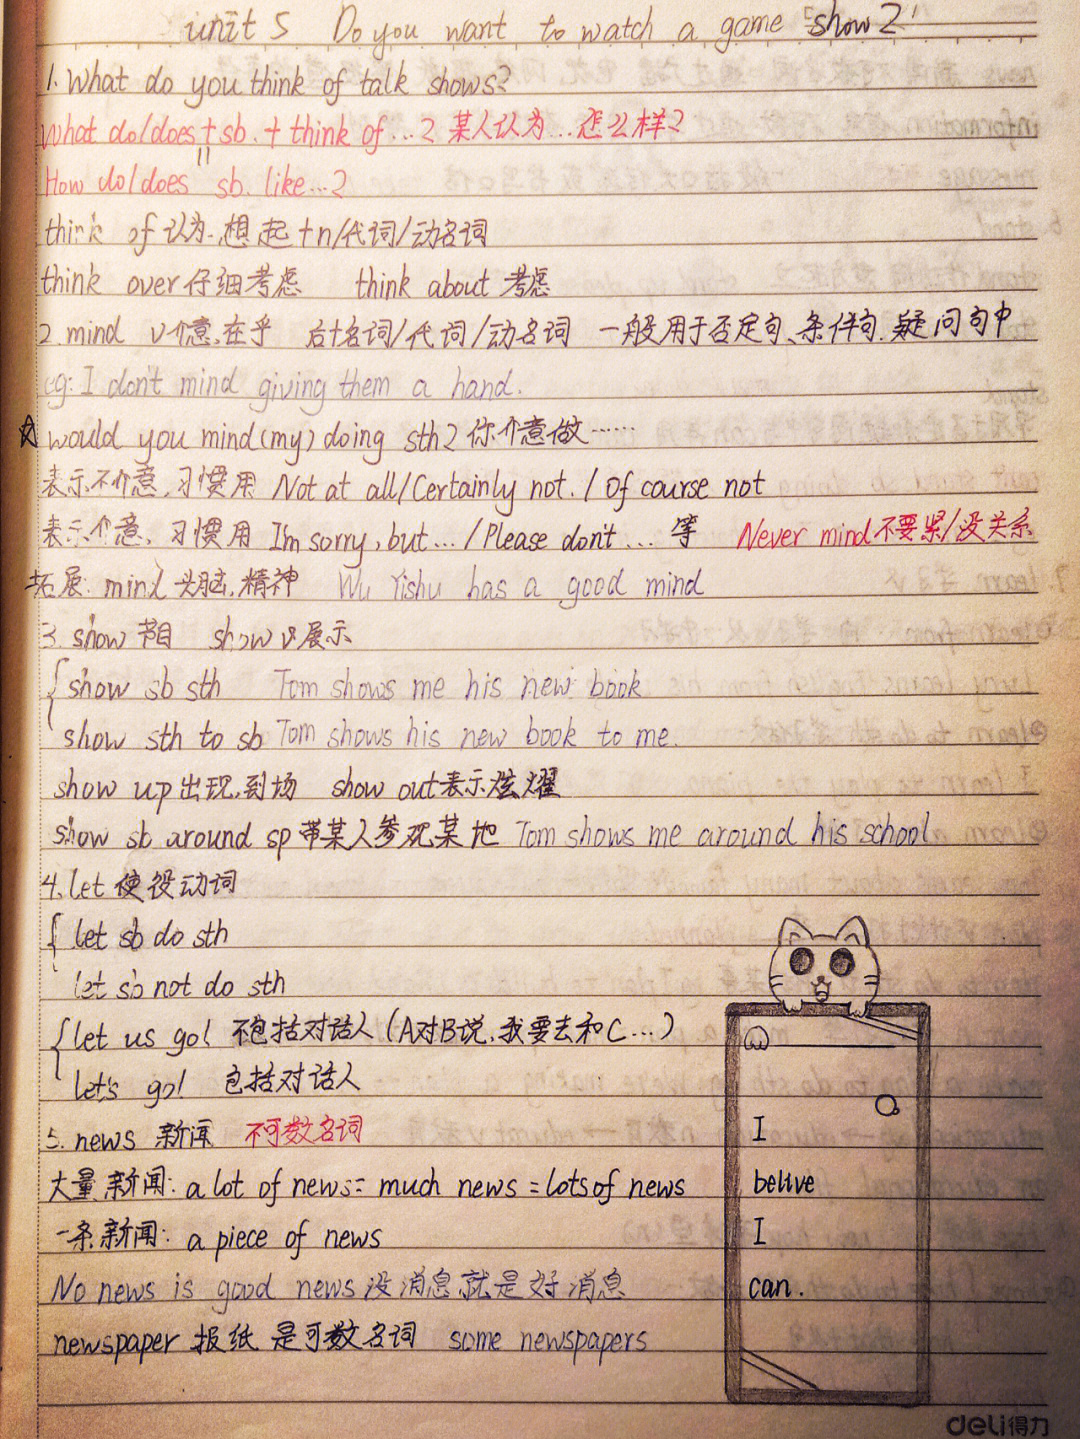 unit 5 Do you want to watch a game show?
1. What do you think of talk shows?
What do/does + sb. + think of...? 某人认为...怎么样?
=
How do/does sb. like...?
think of 认为.想起 +n/代词/动名词
think over 仔细考虑 think about 考虑
2. mind v介意,在乎 后+名词/代词/动名词 一般用于否定句、条件句.疑问句中
eg: I don't mind giving them a hand.
☆ would you mind (my) doing sth? 你介意做……
表示不介意,习惯用 Not at all/Certainly not. / Of course not
表示介意, 习惯用 I'm sorry, but... /Please don't ... 等 Never mind 不要紧/没关系
拓展: mind 头脑,精神 Wu Yishu has a good mind
3. show 节目 show v展示
show sb sth Tom shows me his new book
show sth to sb Tom shows his new book to me.
show up 出现,到场 show out表示炫耀
show sb around sp 带某人参观某地 Tom shows me around his school
4. let 使役动词
let sb do sth
let sb not do sth
let us go! 不包括对话人 (A对B说,我要去和C...)
let's go! 包括对话人
5. news 新闻 不可数名词
大量新闻: a lot of news = much news = lots of news
一条新闻: a piece of news
No news is good news 没消息就是好消息
newspaper 报纸 是可数名词 some newspapers
I
belive
I
can.
deli得力